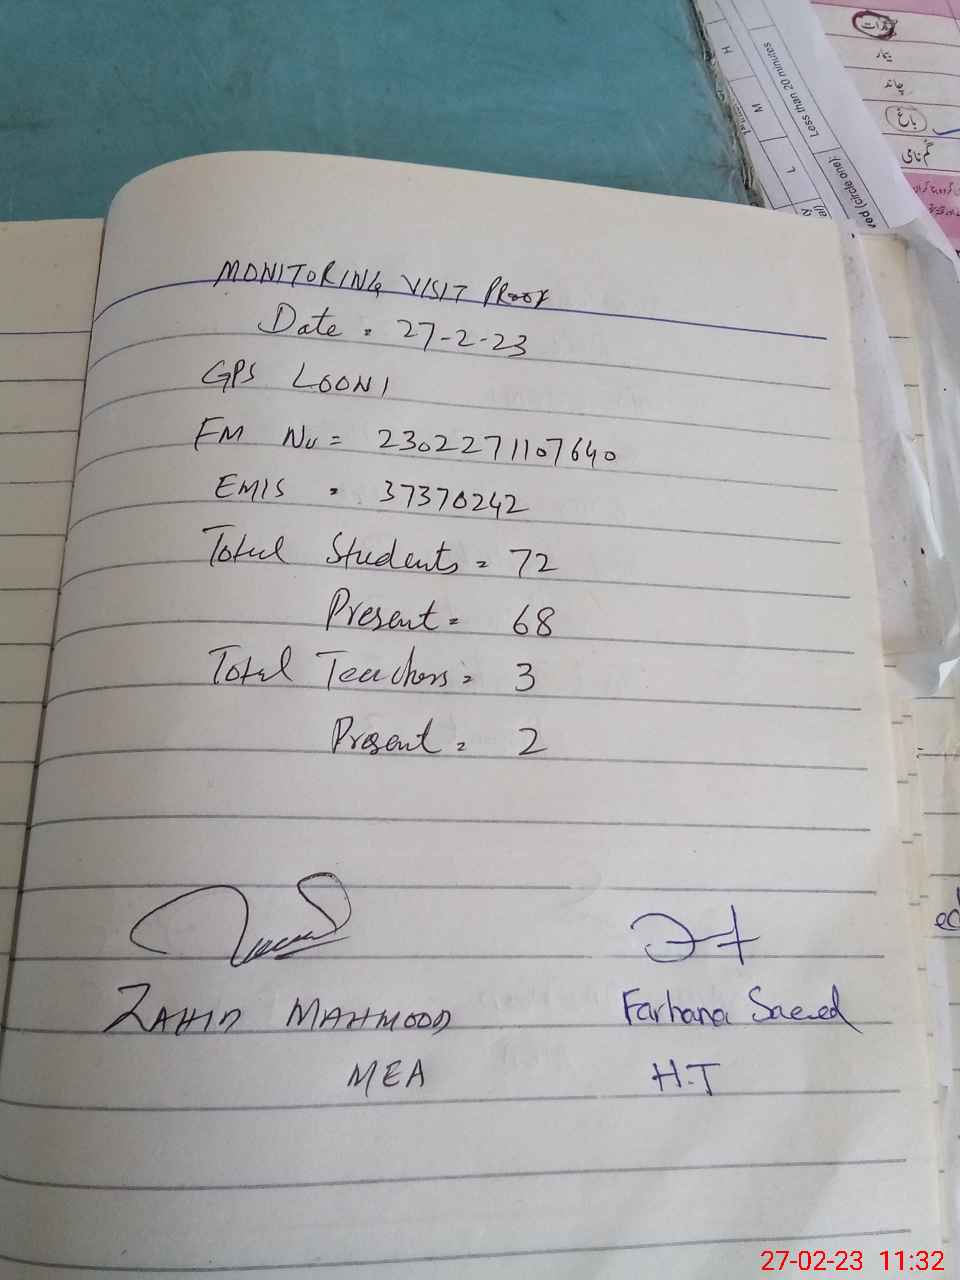 MONITORING VISIT PROOF
Date = 27-2-23
GPS LOONI
FM No = 2302271107640
EMIS = 37370242
Total Students = 72
Present = 68
Total Teachers = 3
Present = 2
ZAHID MAHMOOD
MEA
Farhana Saeed
H.T
H
M
L
Less than 20 minutes
ved (circle one):
چاند
باغ
گمنامی
ed
27-02-23 11:32